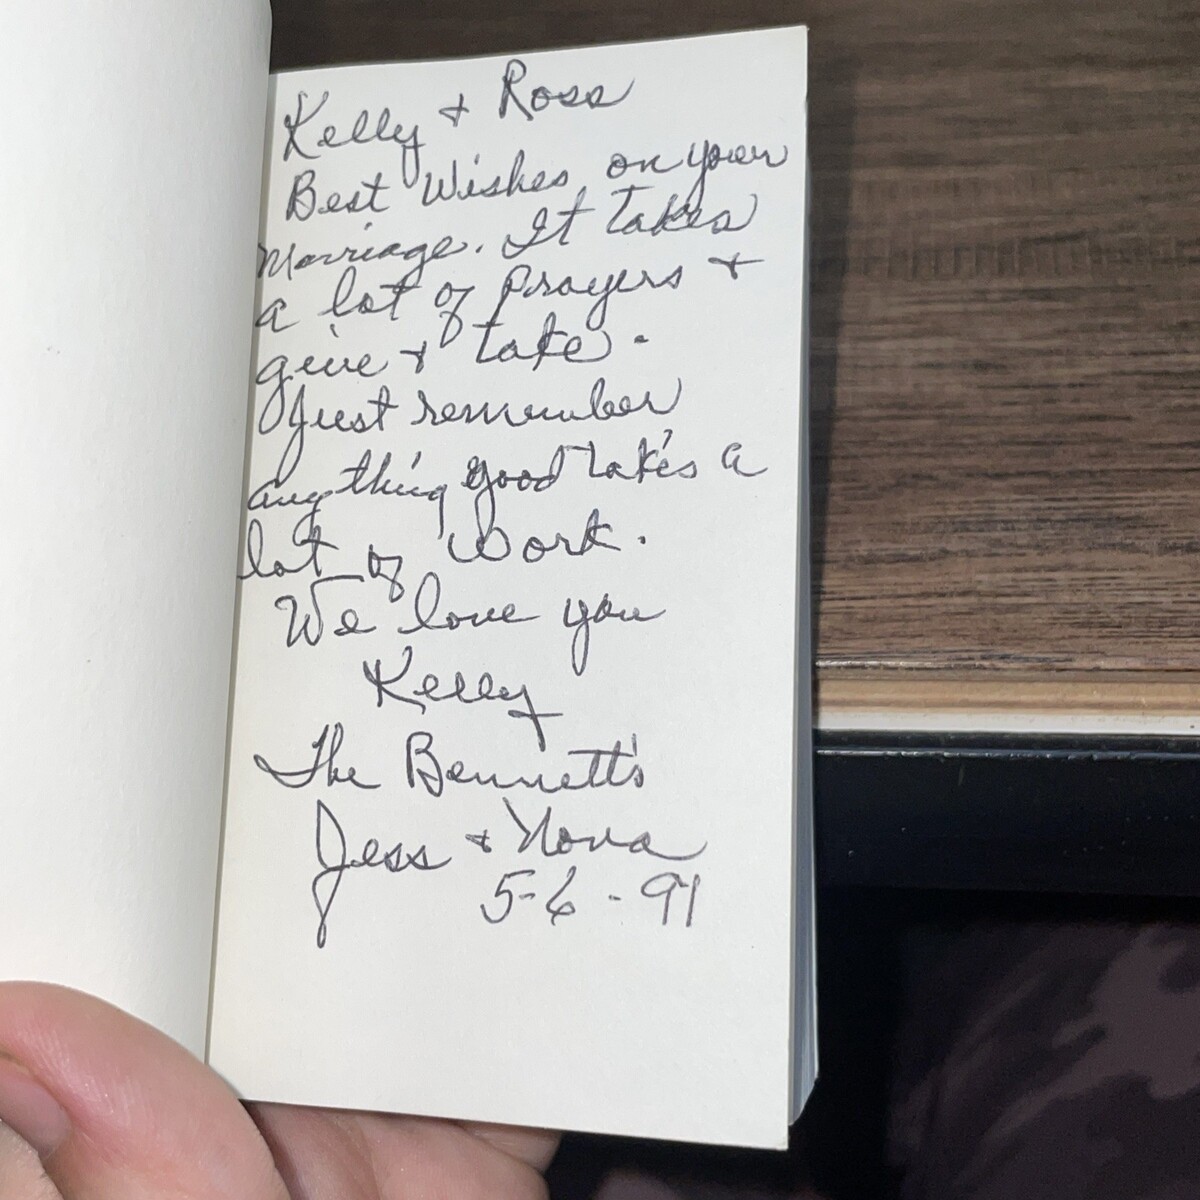 Kelly + Ross
Best Wishes on your
Marriage. It takes
a lot of prayers +
give + take.
Just remember
any thing good takes a
lot of work.
We love you
Kelly
The Bennett's
Jess + Nova
5-6-91